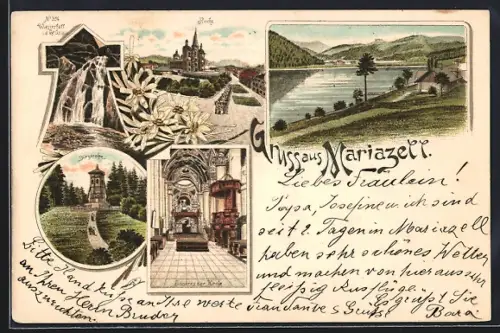 Wasserfall
Kirche
Gruss aus Mariazell.
Inneres der Kirche
Liebes Fräulein!
Papa, Josefine u. ich sind
seit 2 Tagen in Mariazell
haben sehr schönes Wetter
und machen von hier aus sehr
fleißig Ausflüge.
Es grüßt Sie
Bitte Handkuß an Ihre werte
an Ihren Herrn Bruder
auszurichten.